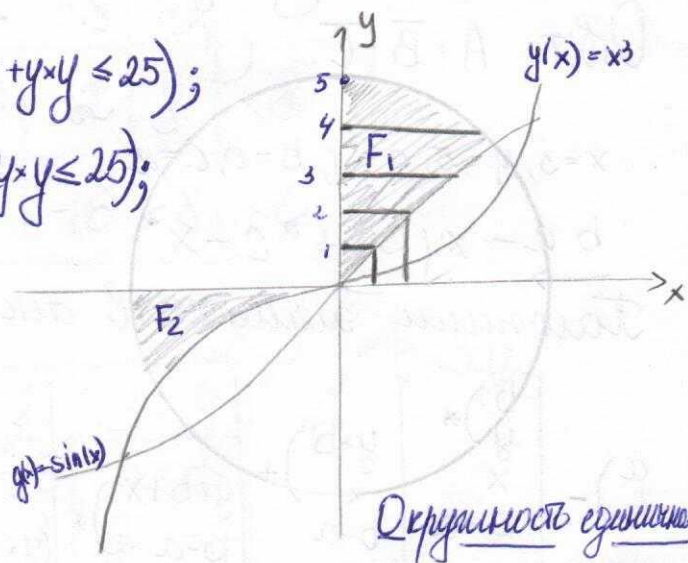 y
+y×y ≤ 25);
y×y ≤ 25);
y(x) = x³
5
4
F₁
3
2
1
x
F₂
g(x)=sin(x)
Окружность единична